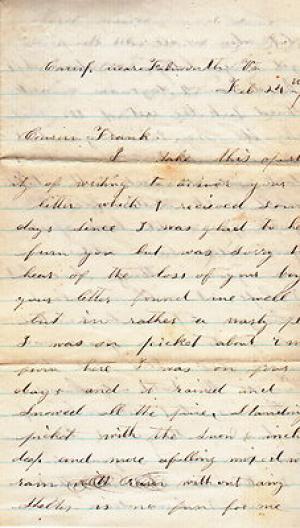 Camp near Falmouth Va
Feb 24
Cousin Frank
I take this oport
ity of writing to answer your
letter which I recieved som
days since I was glad to he
from you but was sorry t
hear of the loss of your boy
your letter found me well
but in rather a nasty p
I was on picket about
from here I was on four
days and it rained and
snowed all the time, Standing
picket with the snow
dep and more a falling mixed w
rain with out any
shelter is no fun for me